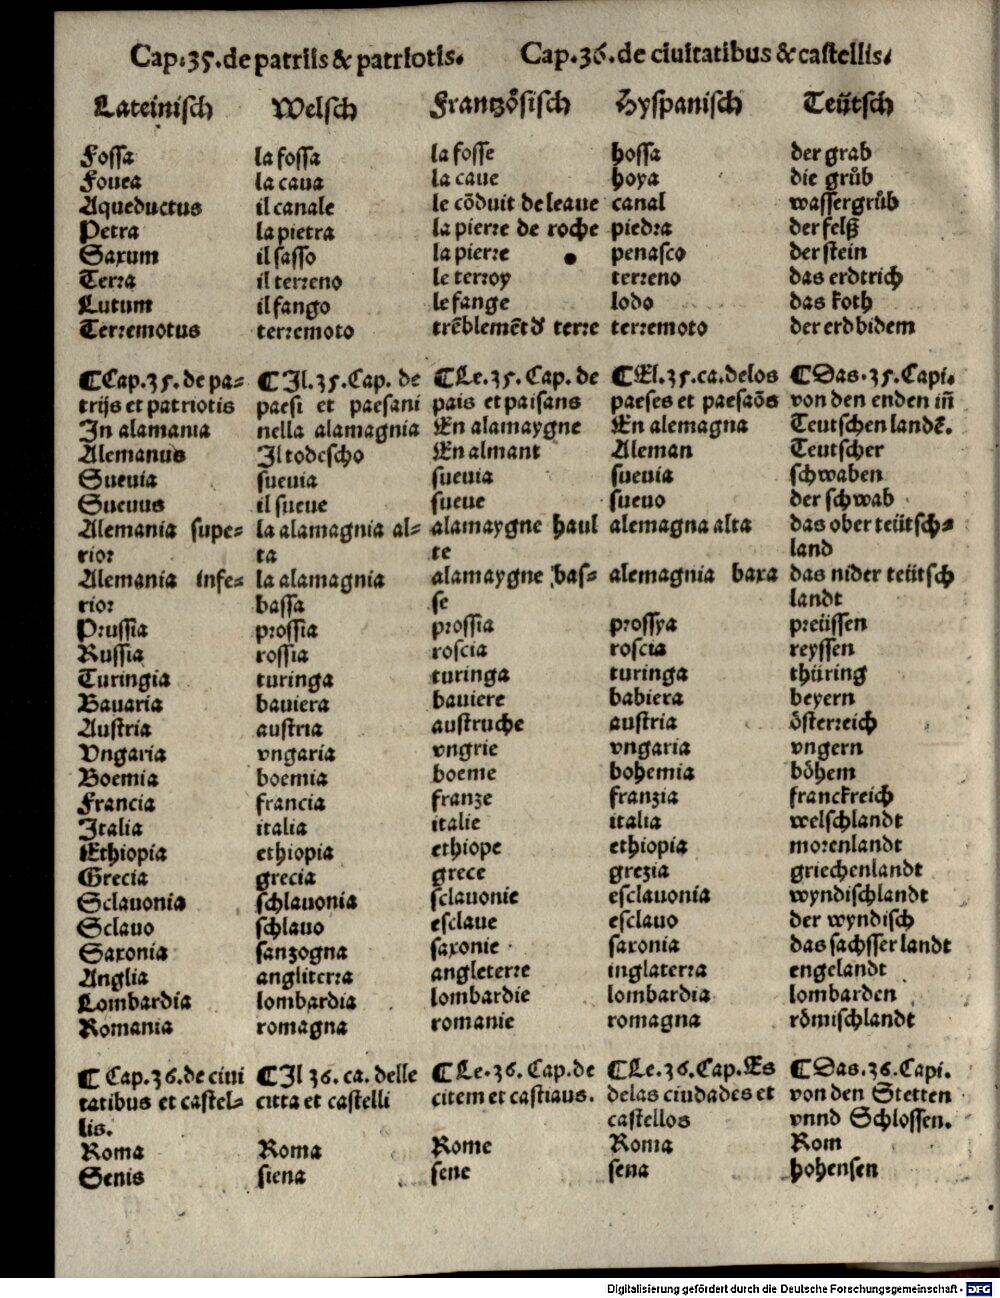 Cap.35.de patriis & patriotis. Cap.36.de ciuitatibus & castellis.
Lateinisch Welsch Frantzősisch Hyspanisch Teütsch
Fossa la fossa la fosse hossa der grab
Fouea la caua la caue hoya die grůb
Aqueductus il canale le cōduit de leaue canal wassergrůb
Petra la pietra la pierre de roche piedra der felß
Saxum il sasso la pierre penasco der stein
Terra il terreno le terroy terreno das erdtrich
Lutum il fango le fange lodo das koth
Terremotus terremoto trēblemēt d' terre terremoto der erdbidem
¶Cap.35.de pa= ¶Il.35.Cap. de ¶Le.35. Cap. de ¶El.35.ca.delos ¶Das.35.Capi.
trijs et patriotis paesi et paesani pais et paisans paeses et paesaōs von den enden iñ
In alamania nella alamagnia En alamaygne En alemagna Teutschen landē.
Alemanus Il todescho En almant Aleman Teutscher
Sueuia sueuia sueuia sueuia schwaben
Sueuus il sueue sueue sueuo der schwab
Alemania supe= la alamagnia al= alamaygne haul alemagna alta das ober teütsch=
rior ta te land
Alemania infe= la alamagnia alamaygne bas= alemagnia baxa das nider teütsch
rior bassa se landt
Prussia prossia prossia prossya preüssen
Russia rossia roscia roscia reyssen
Turingia turinga turinga turinga thüring
Bavaria baviera baviere babiera beyern
Austria austria austruche austria ősterreich
Vngaria vngaria vngrie vngaria vngern
Boemia boemia boeme bohemia bőhem
Francia francia franze franzia franckreich
Italia italia italie italia welschlandt
Ethiopia ethiopia ethiope ethiopia morenlandt
Grecia grecia grece grezia griechenlandt
Sclauonia schlauonia sclauonie esclauonia wyndischlandt
Sclauo schlauo esclaue esclauo der wyndisch
Saxonia sanzogna saxonie saxonia das sachsser landt
Anglia angliterra angleterre inglaterra engelandt
Lombardia lombardia lombardie lombardia lombarden
Romania romagna romanie romagna rőmischlandt
¶ Cap.36.de ciui ¶Il 36. ca. delle ¶Le.36. Cap.de ¶Le.36.Cap.Es ¶Das.36.Capi.
tatibus et castel= citta et castelli citem et castiaus. delas ciudades et von den Stetten
lis. castellos vnnd Schlossen.
Roma Roma Rome Roma Rom
Senis siena sene sena hohensen
Digitalisierung gefördert durch die Deutsche Forschungsgemeinschaft - DFG